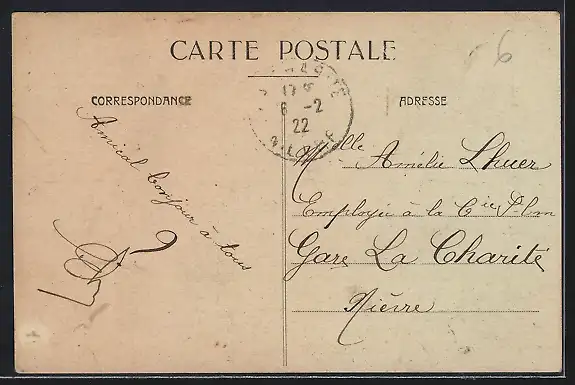 CARTE POSTALE
6
CORRESPONDANCE
ADRESSE
17
6 -2
22
Amical bonjour à tous
Mlle Amélie Lhuer
Employée à la Cie Plm
Gare La Charité
Nièvre